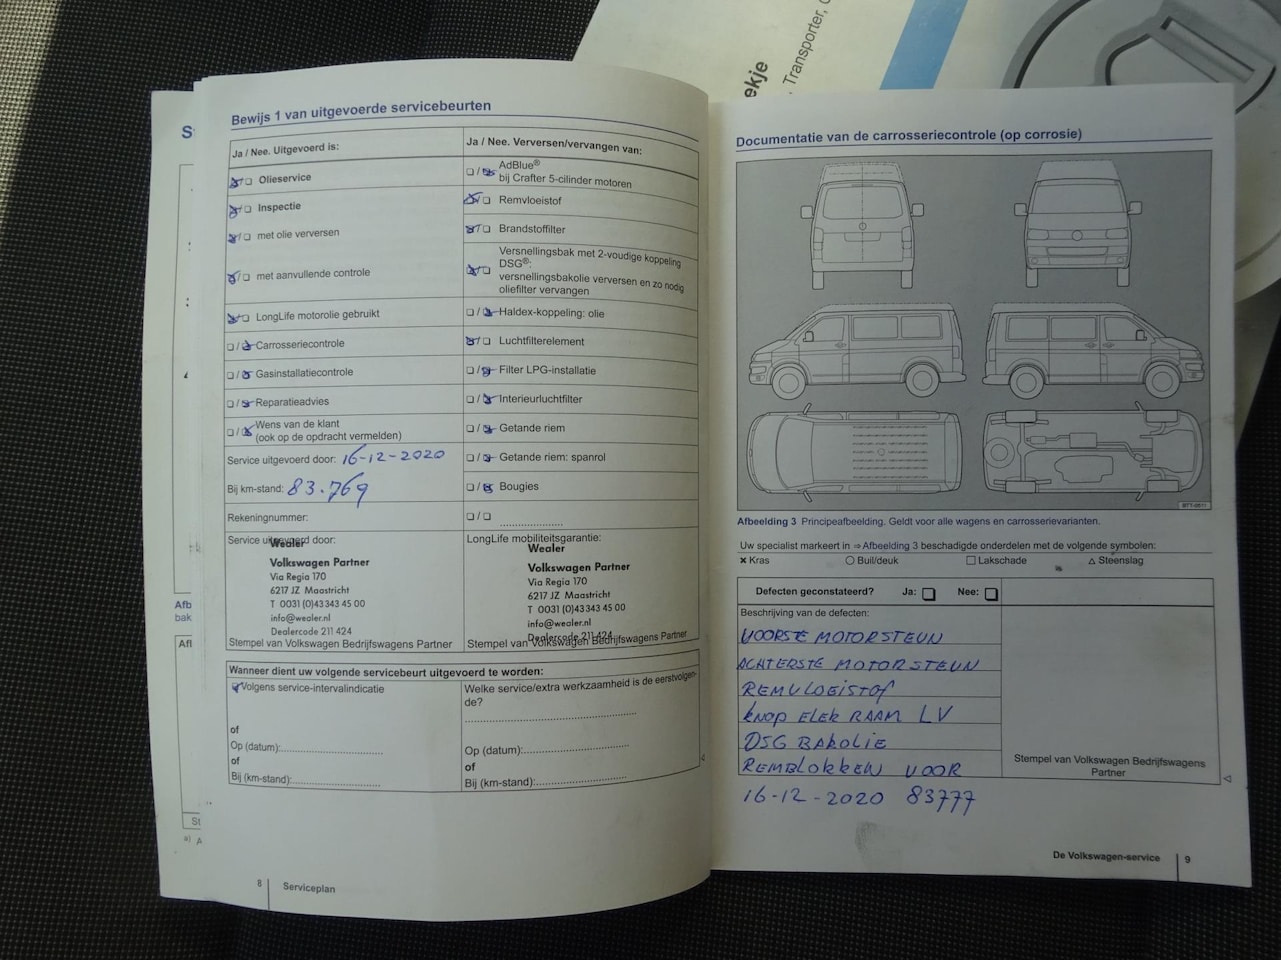 ekje
Transporter, C
S
Afb
bak
Afl
St
a) A
Bewijs 1 van uitgevoerde servicebeurten
Ja / Nee. Uitgevoerd is:
Olieservice
Inspectie
met olie verversen
met aanvullende controle
LongLife motorolie gebruikt
Carrosseriecontrole
Gasinstallatiecontrole
Reparatieadvies
Wens van de klant
(ook op de opdracht vermelden)
Service uitgevoerd door: 16-12-2020
Bij km-stand: 83.769
Rekeningnummer:
Service uitgevoerd door:
Wealer
Volkswagen Partner
Via Regia 170
6217 JZ Maastricht
T 0031 (0)43 343 45 00
info@wealer.nl
Dealercode 211 424
Stempel van Volkswagen Bedrijfswagens Partner
Ja / Nee. Verversen/vervangen van:
AdBlue®
bij Crafter 5-cilinder motoren
Remvloeistof
Brandstoffilter
Versnellingsbak met 2-voudige koppeling
DSG®:
versnellingsbakolie verversen en zo nodig
oliefilter vervangen
Haldex-koppeling: olie
Luchtfilterelement
Filter LPG-installatie
Interieurluchtfilter
Getande riem
Getande riem: spanrol
Bougies
LongLife mobiliteitsgarantie:
Wealer
Volkswagen Partner
Via Regia 170
6217 JZ Maastricht
T 0031 (0)43 343 45 00
info@wealer.nl
Dealercode 211 424
Stempel van Volkswagen Bedrijfswagens Partner
Wanneer dient uw volgende servicebeurt uitgevoerd te worden:
Volgens service-intervalindicatie
of
Op (datum):
of
Bij (km-stand):
Welke service/extra werkzaamheid is de eerstvolgen-
de?
Op (datum):
of
Bij (km-stand):
8 Serviceplan
Documentatie van de carrosseriecontrole (op corrosie)
Afbeelding 3 Principeafbeelding. Geldt voor alle wagens en carrosserievarianten.
Uw specialist markeert in ⇒ Afbeelding 3 beschadigde onderdelen met de volgende symbolen:
Kras Buil/deuk Lakschade Steenslag
Defecten geconstateerd? Ja: Nee:
Beschrijving van de defecten:
VOORSTE MOTORSTEUN
ACHTERSTE MOTORSTEUN
REMVLOEISTOF
KNOP ELEK RAAM LV
DSG BAKOLIE
REMBLOKKEN VOOR
16-12-2020 83777
Stempel van Volkswagen Bedrijfswagens
Partner
De Volkswagen-service 9